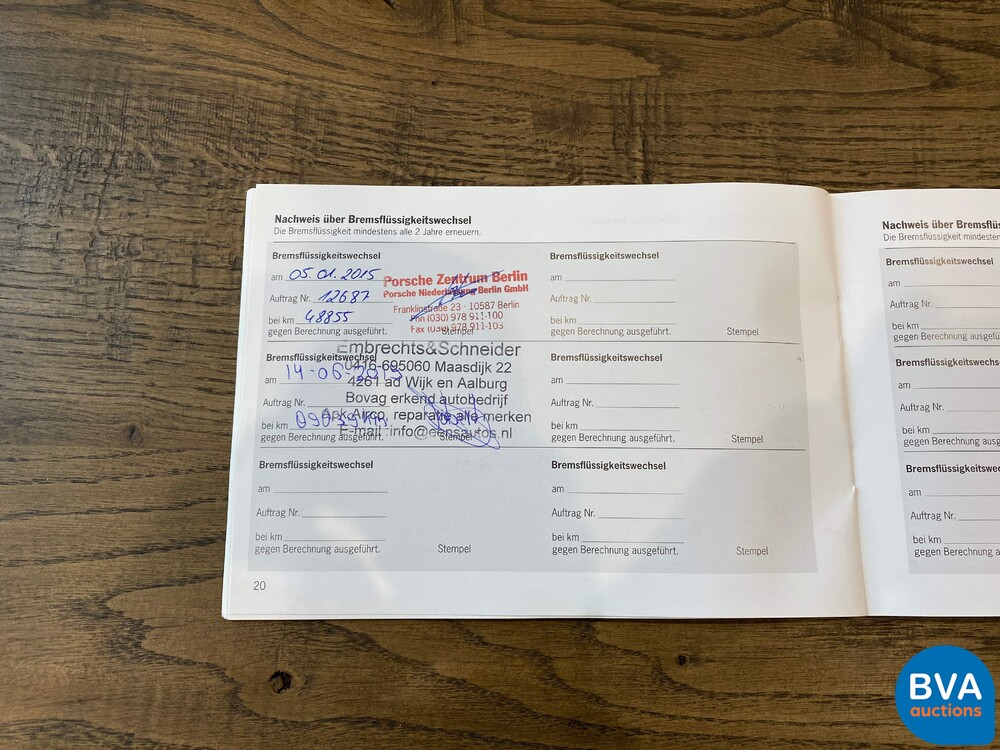 Nachweis über Bremsflüssigkeitswechsel
Die Bremsflüssigkeit mindestens alle 2 Jahre erneuern.
Bremsflüssigkeitswechsel
am 05.01.2015
Auftrag Nr. 12687
bei km 48855
gegen Berechnung ausgeführt.
Stempel
Porsche Zentrum Berlin
Porsche Niederlassung Berlin GmbH
Franklinstraße 23 · 10587 Berlin
Fon (030) 978 911-100
Fax (030) 978 911-103
Bremsflüssigkeitswechsel
am 14-06-2019
Auftrag Nr.
bei km
gegen Berechnung ausgeführt.
Stempel
Embrechts&Schneider
0416-695060 Maasdijk 22
4261 ad Wijk en Aalburg
Bovag erkend autobedrijf
Airco, reparatie alle merken
E-mail :info@eensautos.nl
Bremsflüssigkeitswechsel
am
Auftrag Nr.
bei km
gegen Berechnung ausgeführt.
Stempel
Bremsflüssigkeitswechsel
am
Auftrag Nr.
bei km
gegen Berechnung ausgeführt.
Stempel
Bremsflüssigkeitswechsel
am
Auftrag Nr.
bei km
gegen Berechnung ausgeführt.
Stempel
Bremsflüssigkeitswechsel
am
Auftrag Nr.
bei km
gegen Berechnung ausgeführt.
Stempel
20
Nachweis über Bremsflüs
Die Bremsflüssigkeit mindesten
Bremsflüssigkeitswechsel
am
Auftrag Nr.
bei km
gegen Berechnung ausgefü
Bremsflüssigkeitswechs
am
Auftrag Nr.
bei km
gegen Berechnung ausge
Bremsflüssigkeitswe
am
Auftrag Nr.
bei km
gegen Berechnung a
BVA
auctions